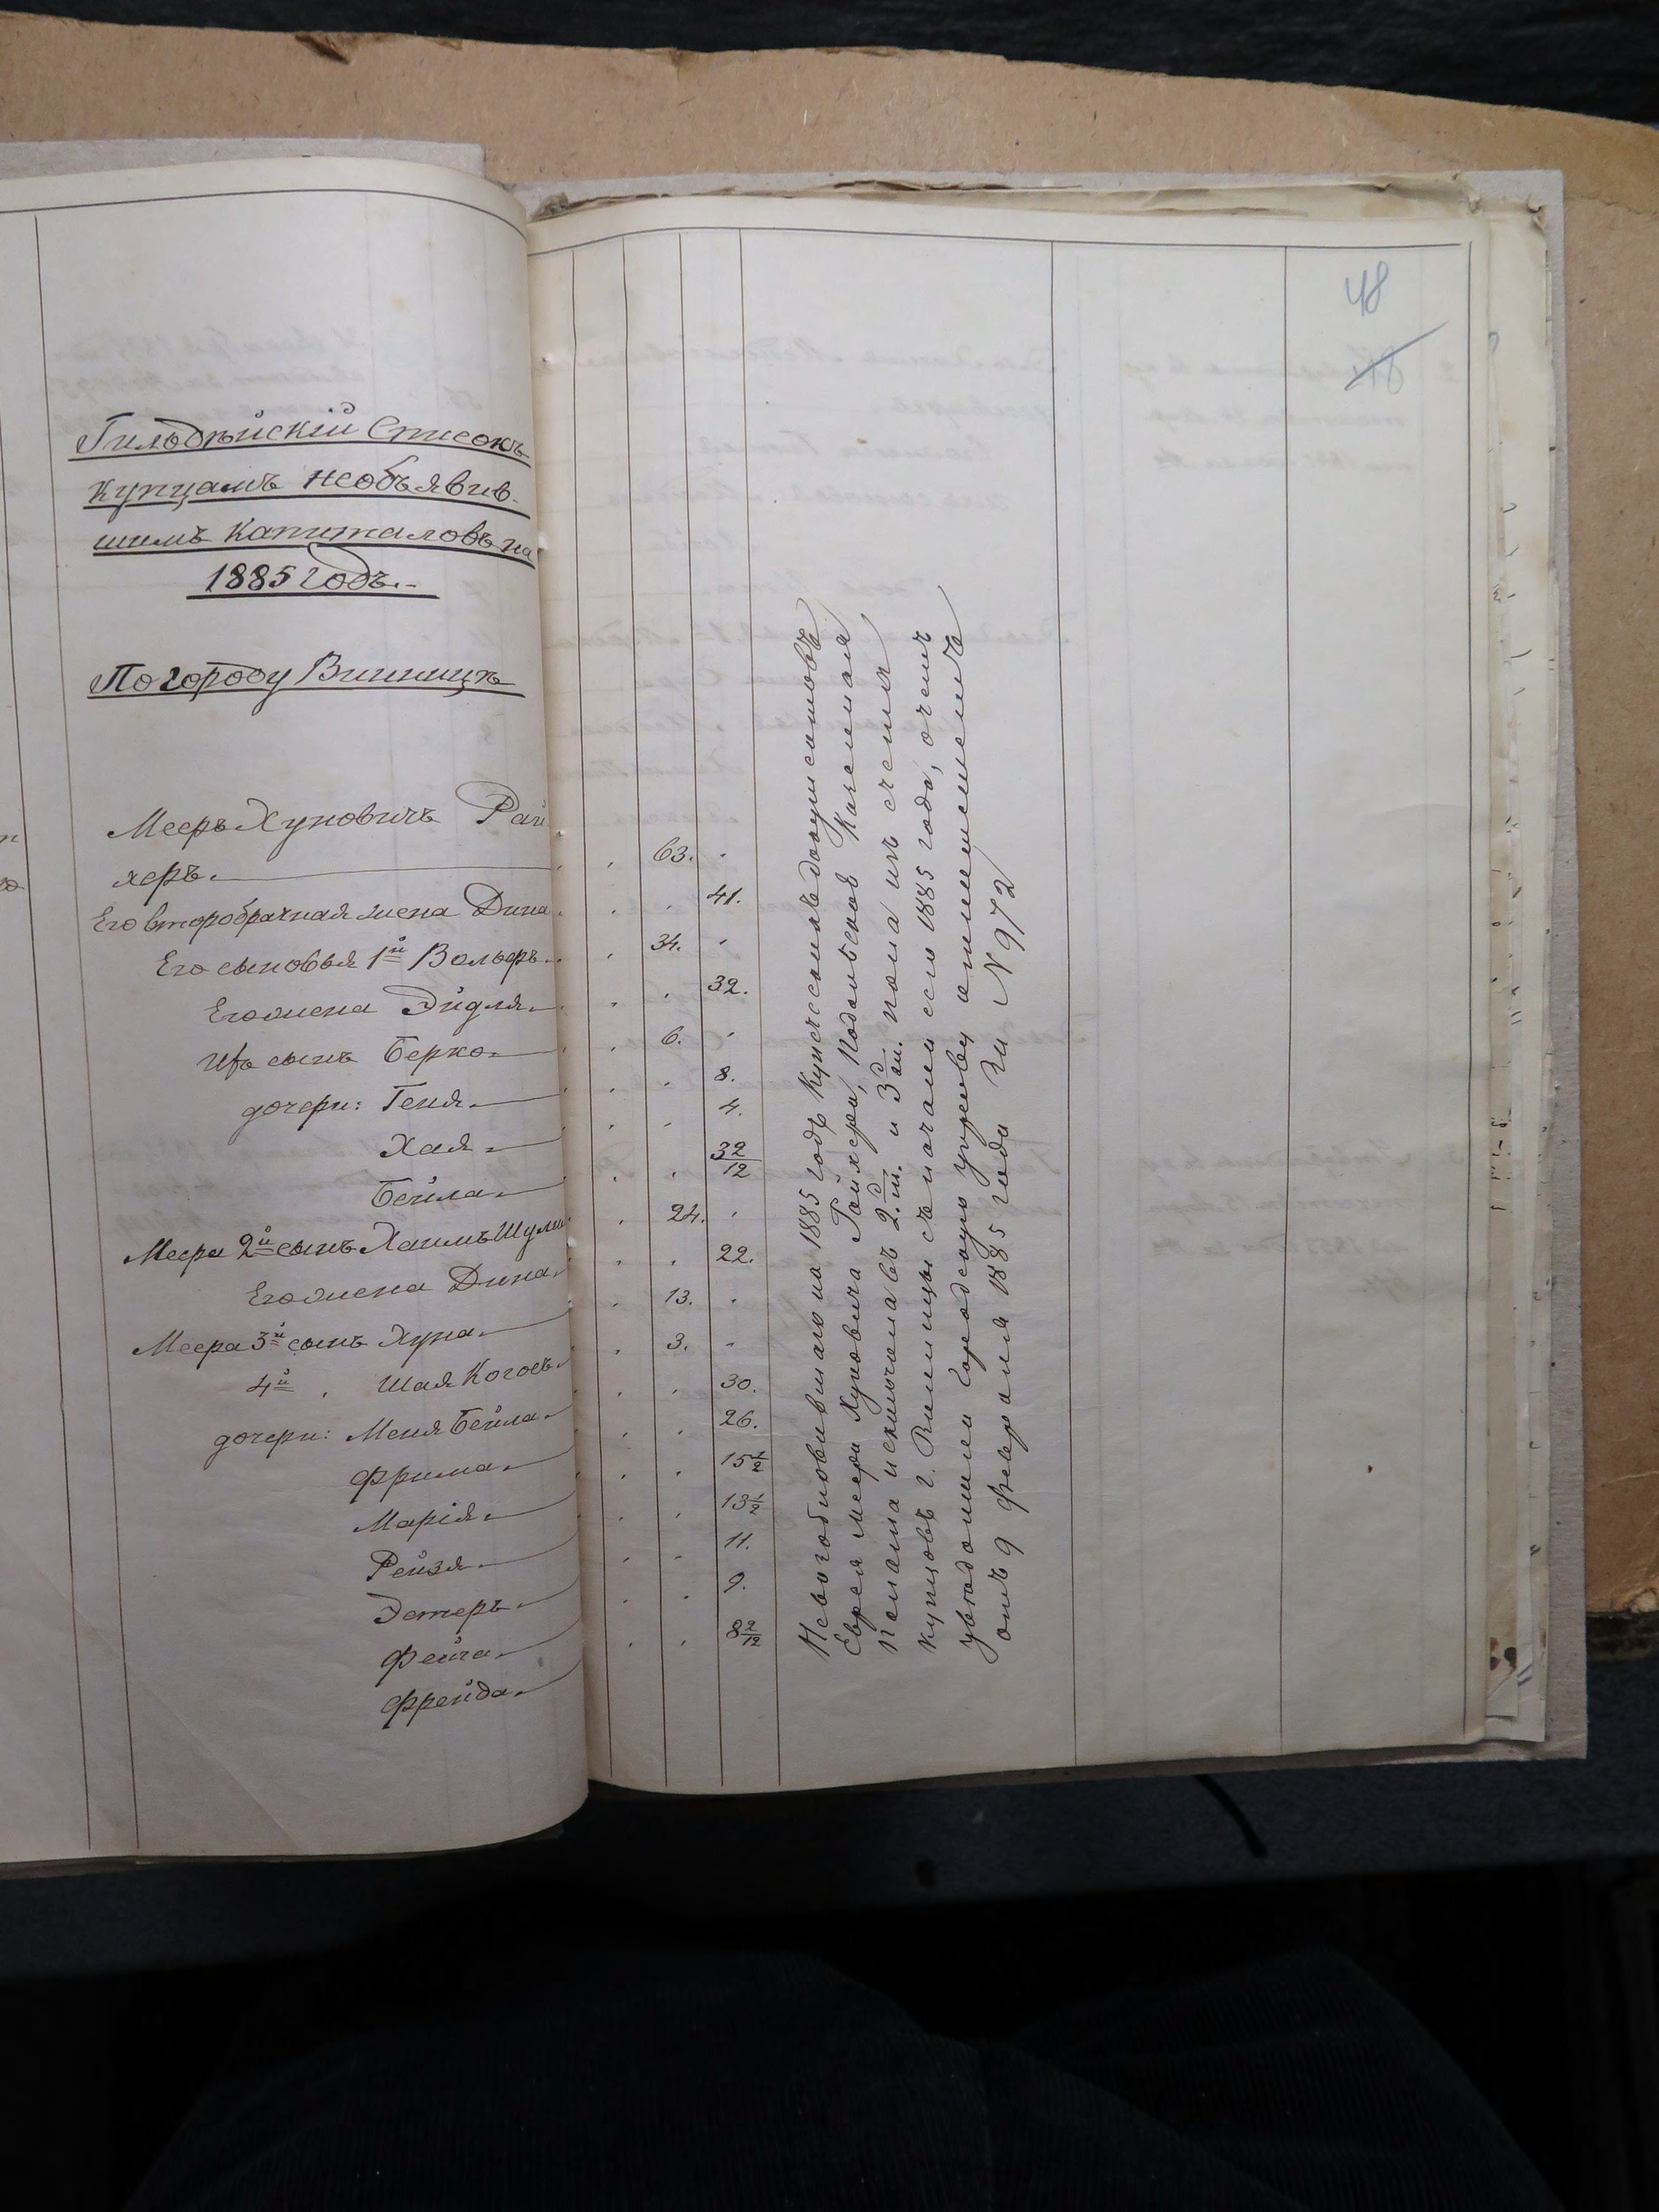 Гильдѣйскій Списокъ
купцамъ необъявив-
шимъ капиталовъ на
1885 годъ.-
По городу Винницѣ
Мееръ Хуновичъ Рай
херъ.
Его второбрачная жена Дина
Его сыновья 1й Вольфъ.
Его жена Эйдля
Ихъ сынъ Берко
дочери: Геня
Хая
Бейла
Меера 2й сынъ Хаимъ Шулим
Его жена Дина
Меера 3й сынъ Хуна
4й " Шая Когосъ
дочери: Меня Бейла
Фрима
Марія
Рейзя
Эстеръ
Фейга
Фрейда
48
48
63.
41.
34.
32.
6.
8.
4.
32/12
24.
22.
13.
3.
30.
26.
15 1/2
13 1/2
11.
9.
8 2/12
Невозобновившаго на 1885 годъ купеческихъ документовъ
Еврея Меера Хуновича Райхера, Подольская Казенная
Палата исключила въ 2. д. ш. и 3 д. ап. пола изъ счета
купцовъ г. Винницы съ начала сего 1885 года, о чемъ
увѣдомила Городскую управу отношеніемъ
отъ 9 Февраля 1885 года за N 972